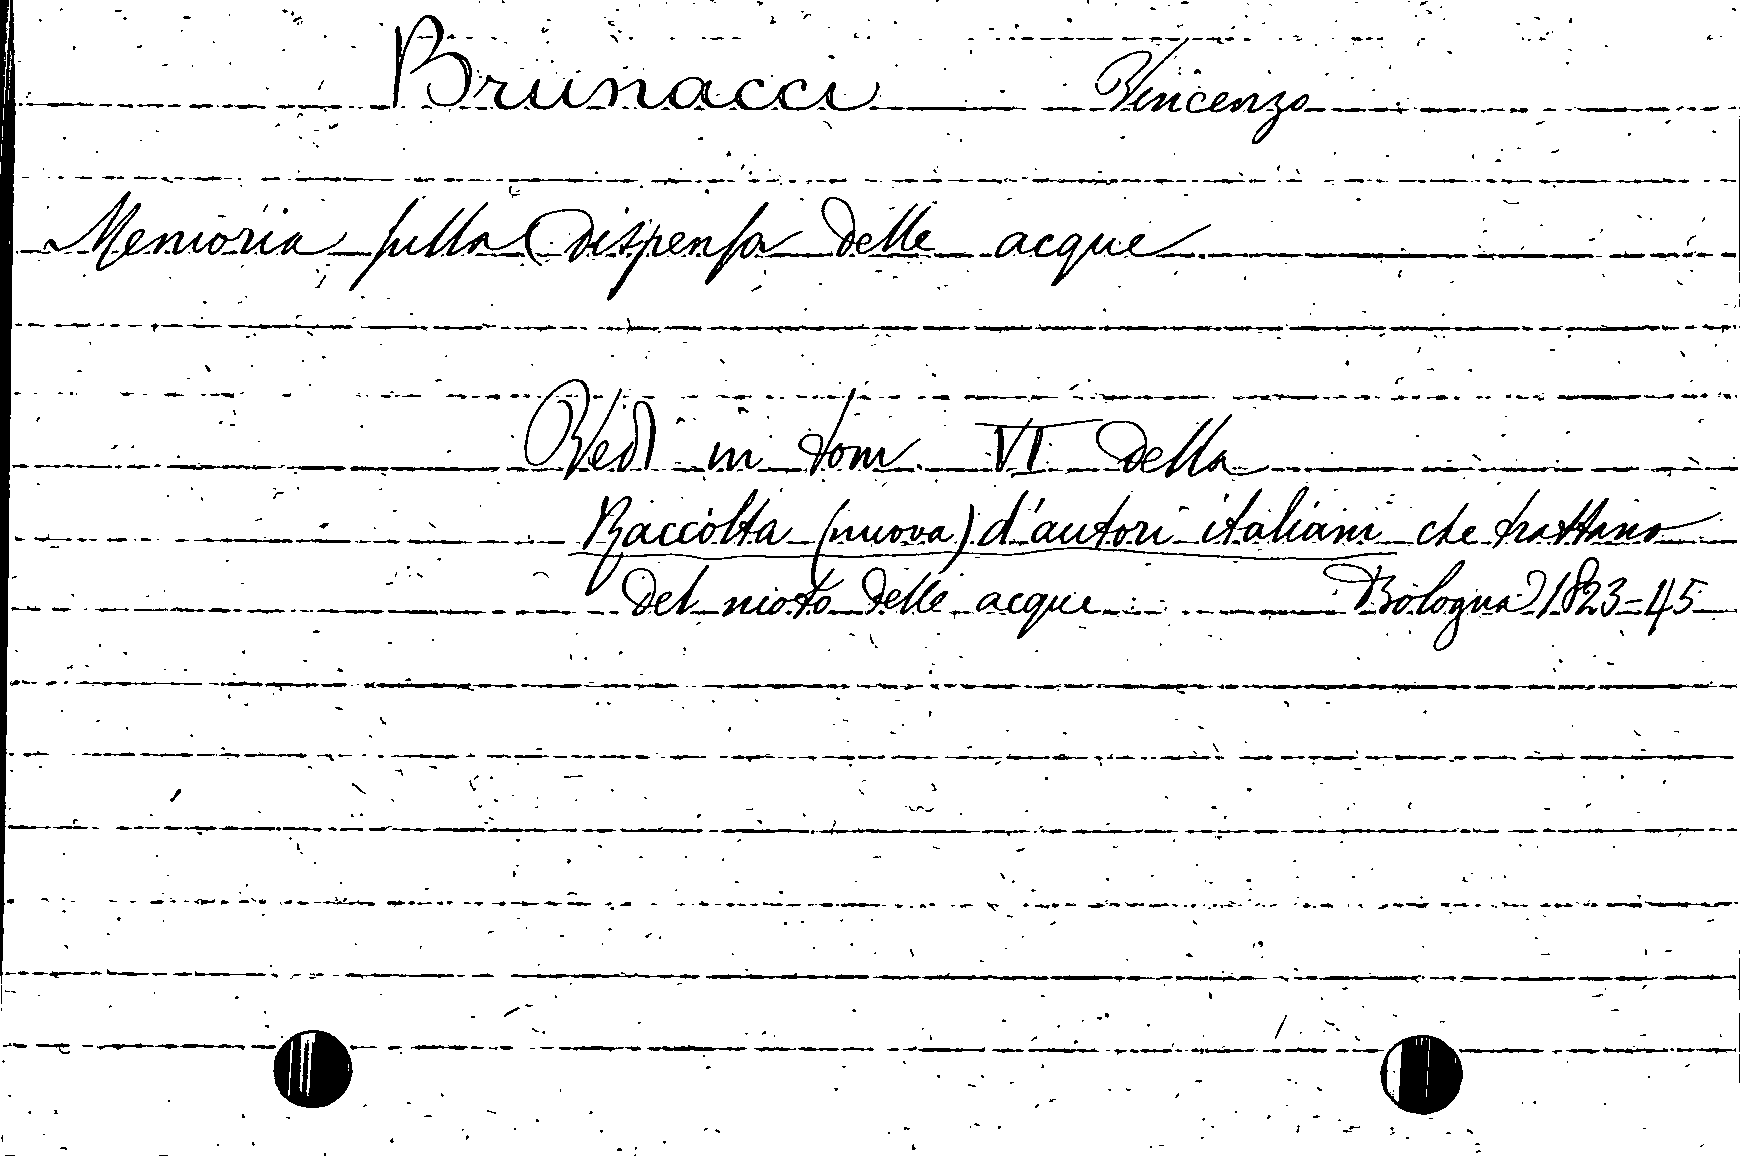 Brunacci Vincenzo
Memoria sulla Dispensa delle acque
Vedi in tom VI della
Raccolta (nuova) d'autori italiani che trattano
del moto delle acque Bologna 1823-45